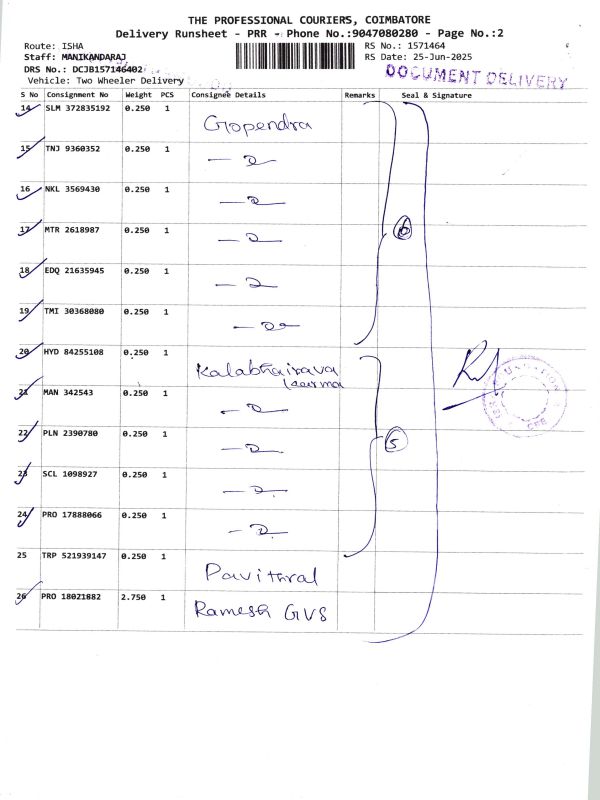 THE PROFESSIONAL COURIERS, COIMBATORE
Delivery Runsheet - PRR - Phone No.:9047080280 - Page No.:2
Route: ISHA
RS No.: 1571464
Staff: MANIKANDARAJ
RS Date: 25-Jun-2025
DRS No.: DCJB157146402
DOCUMENT DELIVERY
Vehicle: Two Wheeler Delivery
S No Consignment No Weight PCS Consignee Details Remarks Seal & Signature
14 SLM 372835192 0.250 1 Gopendra
15 TNJ 9360352 0.250 1
16 NKL 3569430 0.250 1
17 MTR 2618987 0.250 1
6
18 EDQ 21635945 0.250 1
19 TMI 30368080 0.250 1
20 HYD 84255108 0.250 1 Kalabhairava
karma
21 MAN 342543 0.250 1
22 PLN 2390780 0.250 1
5
23 SCL 1098927 0.250 1
24 PRO 17888066 0.250 1
25 TRP 521939147 0.250 1 Pavithral
26 PRO 18021882 2.750 1 Ramesh GVS